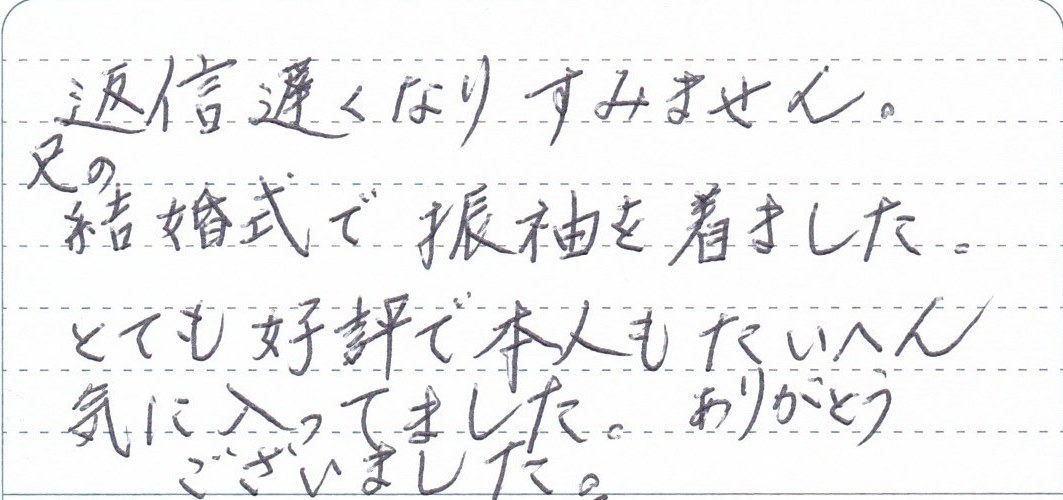 返信遅くなりすみません。
兄の
結婚式で振袖を着ました。
とても好評で本人もたいへん
気に入ってました。ありがとう
ございました。